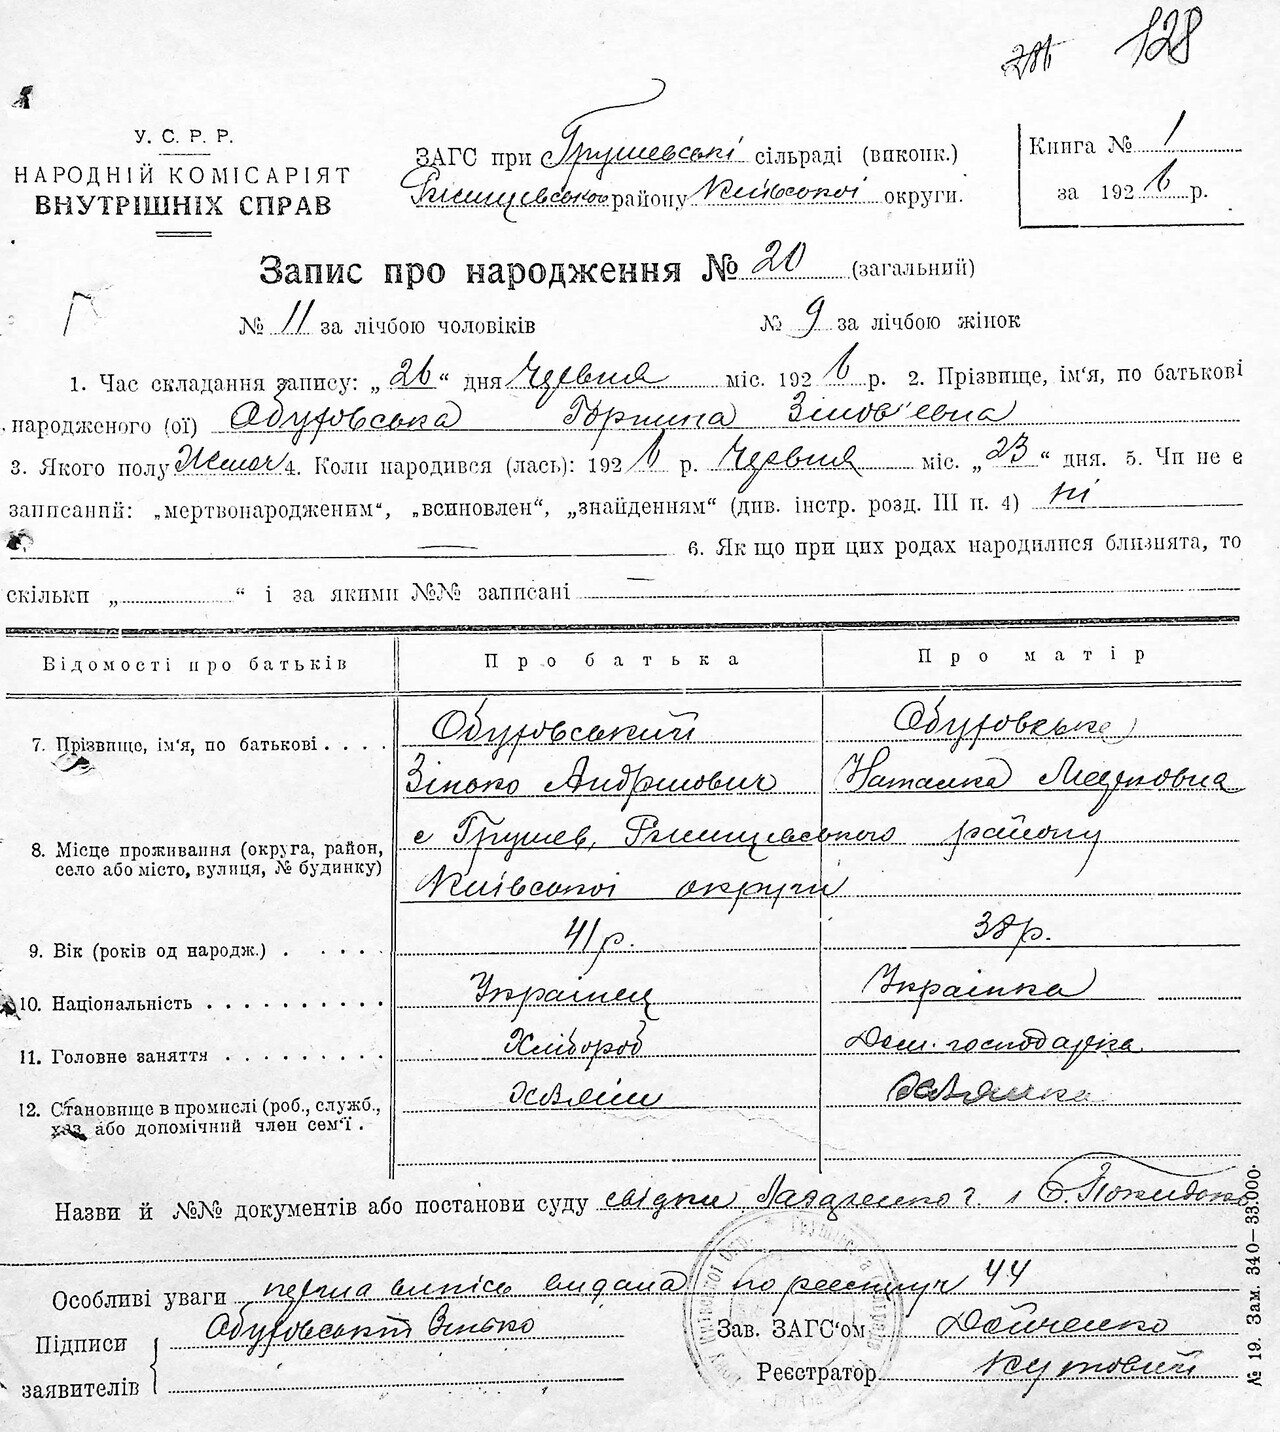 128
У. С. Р. Р.
НАРОДНІЙ КОМІСАРІЯТ
ВНУТРІШНІХ СПРАВ
ЗАГС при Грушевські сільраді (виконк.)
Ржищевського району Київської округи.
Книга № 1
за 1926 р.
Запис про народження № 20 (загальний)
№ 11 за лічбою чоловіків № 9 за лічбою жінок
1. Час складання запису: „26“ дня Червня міс. 1926 р. 2. Прізвище, ім'я, по батькові
народженого (ої) Обуховська Горпина Зінов'евна
3. Якого полу Жіноч 4. Коли народився (лась): 1926 р. Червня міс. „23“ дня. 5. Чи не є
записаний: „мертвонародженим“, „всиновлен“, „знайденням“ (див. інстр. розд. III п. 4) ні
6. Як що при цих родах народилися близнята, то
скільки „ “ і за якими №№ записані
Відомості про батьків Про батька Про матір
7. Прізвище, ім'я, по батькові . . . . Обуховський Обуховська
Зінько Андріович Наталка
8. Місце проживання (округа, район, с Грушев, Ржищевського району
село або місто, вулиця, № будинку) Київської округи
9. Вік (років од народж.) . . . . . 41 р. 38 р.
10. Національність . . . . . . . . . . Українец Українка
11. Головне заняття . . . . . . . . . Хлібороб Дом. господарка
12. Становище в промислі (роб., служб., Хазяїн Хазяйка
хаз. або допомічний член сем'ї .
Назви й №№ документів або постанови суду свідки Лазаренко г. і
Особливі уваги перша випісь видана по реестру 44
Підписи заявителів Обуховський Зінько
Зав. ЗАГС'ом Дейченко
Реєстратор Кутовий
№ 19. Зам. 340—33.000.